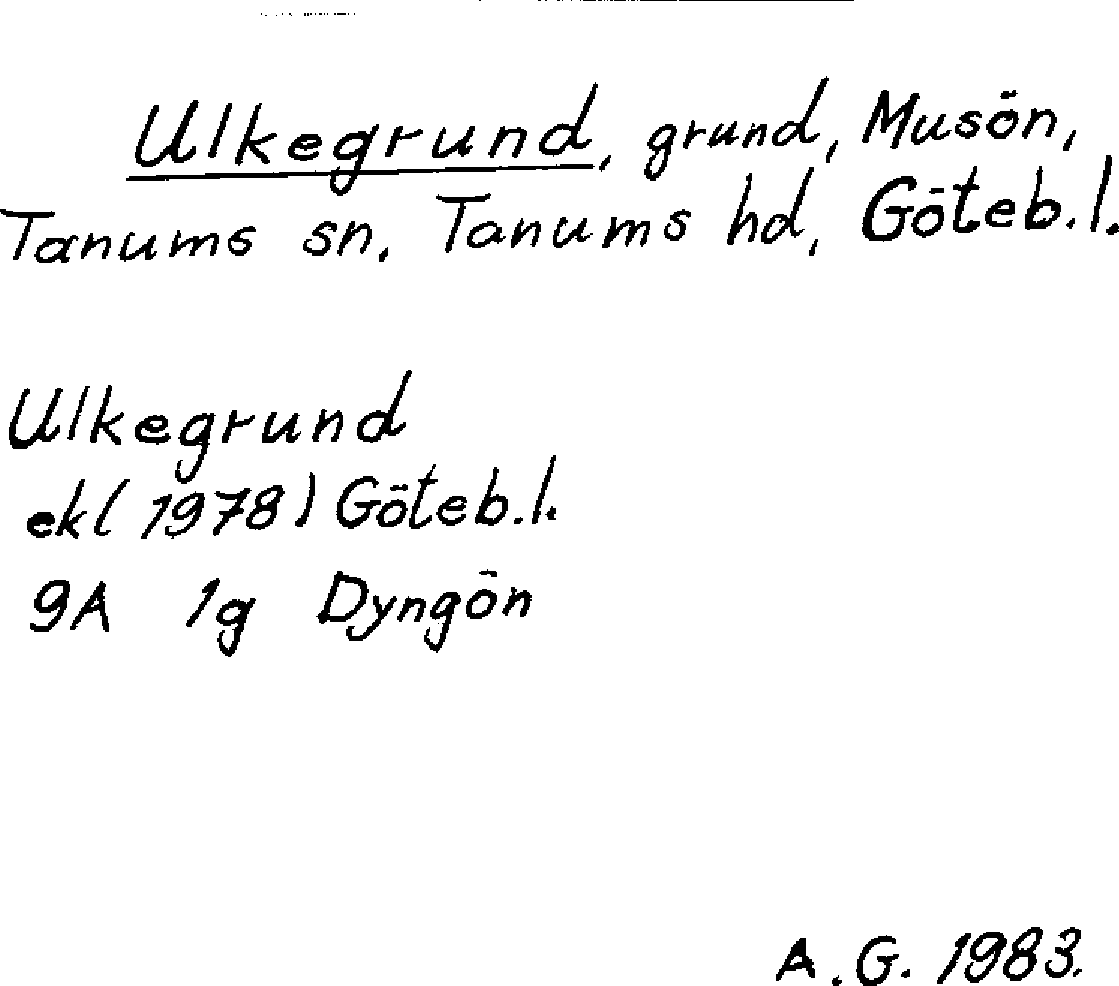 Ulkegrund, grund, Musön,
Tanums sn. Tanums hd, Göteb.l.
Ulkegrund
ekl(1978) Göteb.l.
9A 1g Dyngön
A.G. 1983.